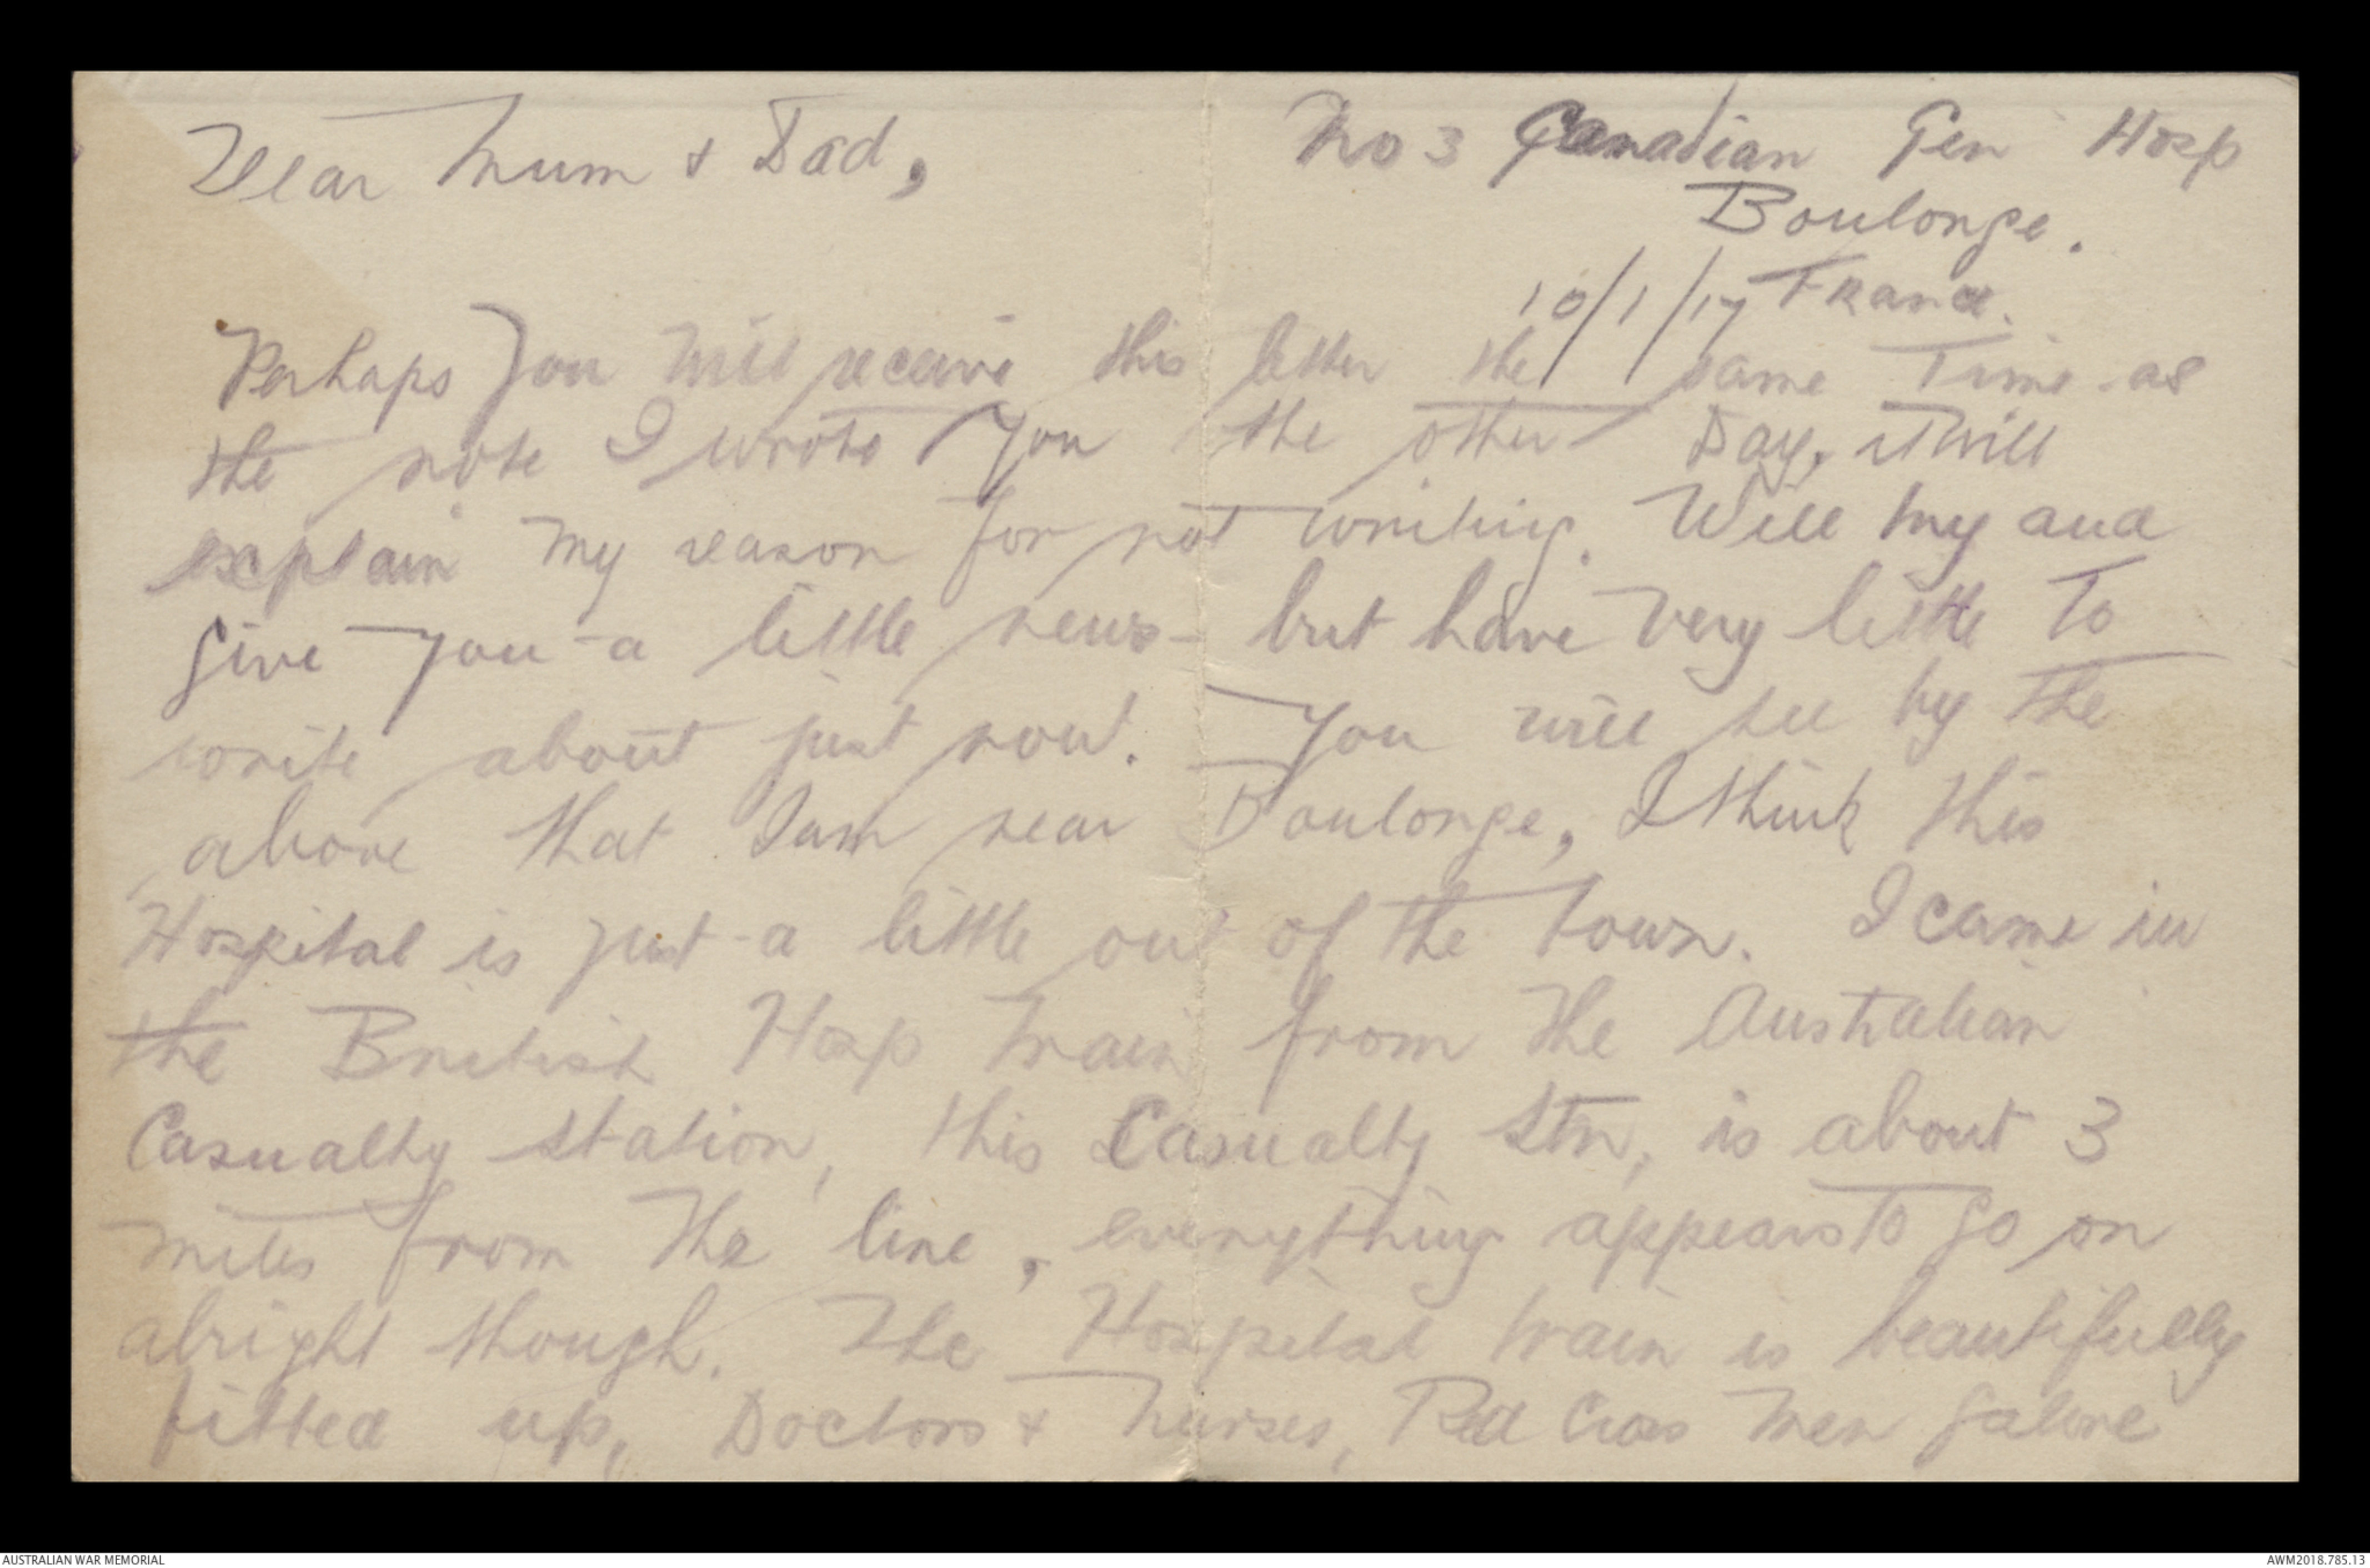 Dear Mum & Dad,
No 3 Canadian Gen Hosp
Boulonge.
10/1/17 France.
Perhaps you will receive this letter the same time as
the note I wrote you the other Day, it will
explain my reason for not writing. Will try and
give you a little news but have very little to
write about just now. You will see by the
above that I am near Boulonge, I think this
Hospital is just a little out of the town. I came in
the British Hosp train from the Australian
Casualty station, this Casualty Stn, is about 3
miles from the line, everything appears to go on
alright though. The Hospital train is beautifully
fitted up, Doctors & Nurses, Red Cross men galore
AUSTRALIAN WAR MEMORIAL
AWM2018.785.13